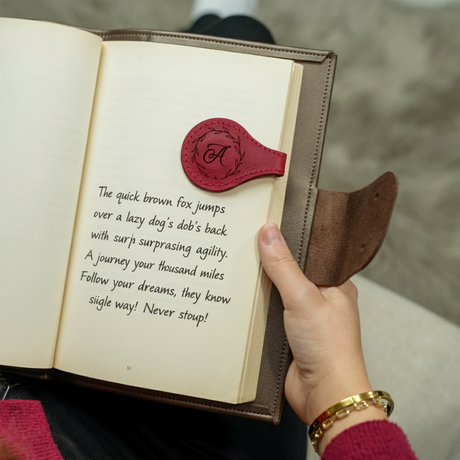 A
The quick brown fox jumps
over a lazy dog's dob's back
with surp surprasing agility.
A journey your thousand miles
Follow your dreams, they know
siigle way! Never stoup!